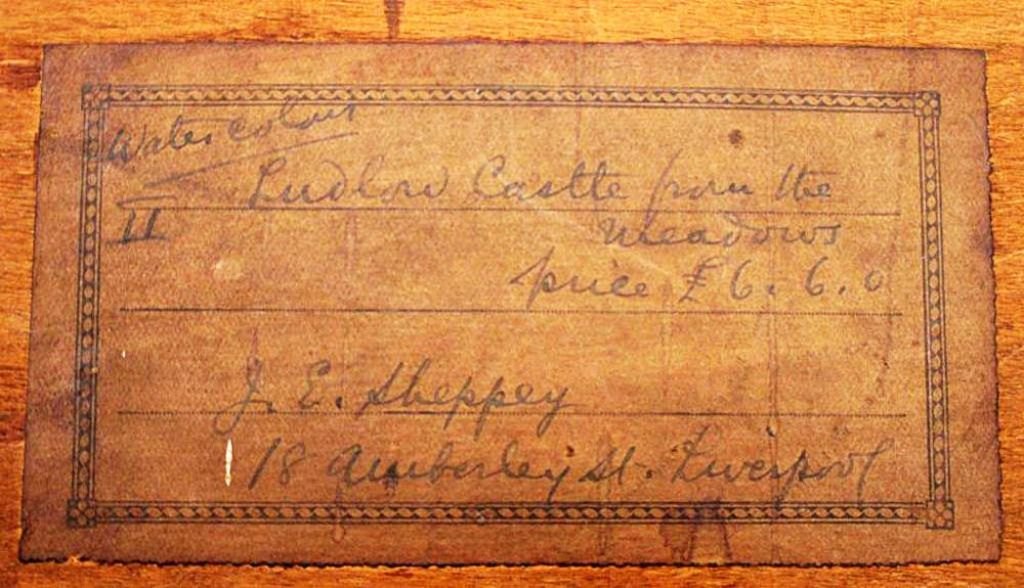 Watercolour
II
Ludlow Castle from the
meadows
price £6.6.0
J. E. Sheppey
18 Amberley St. Liverpool